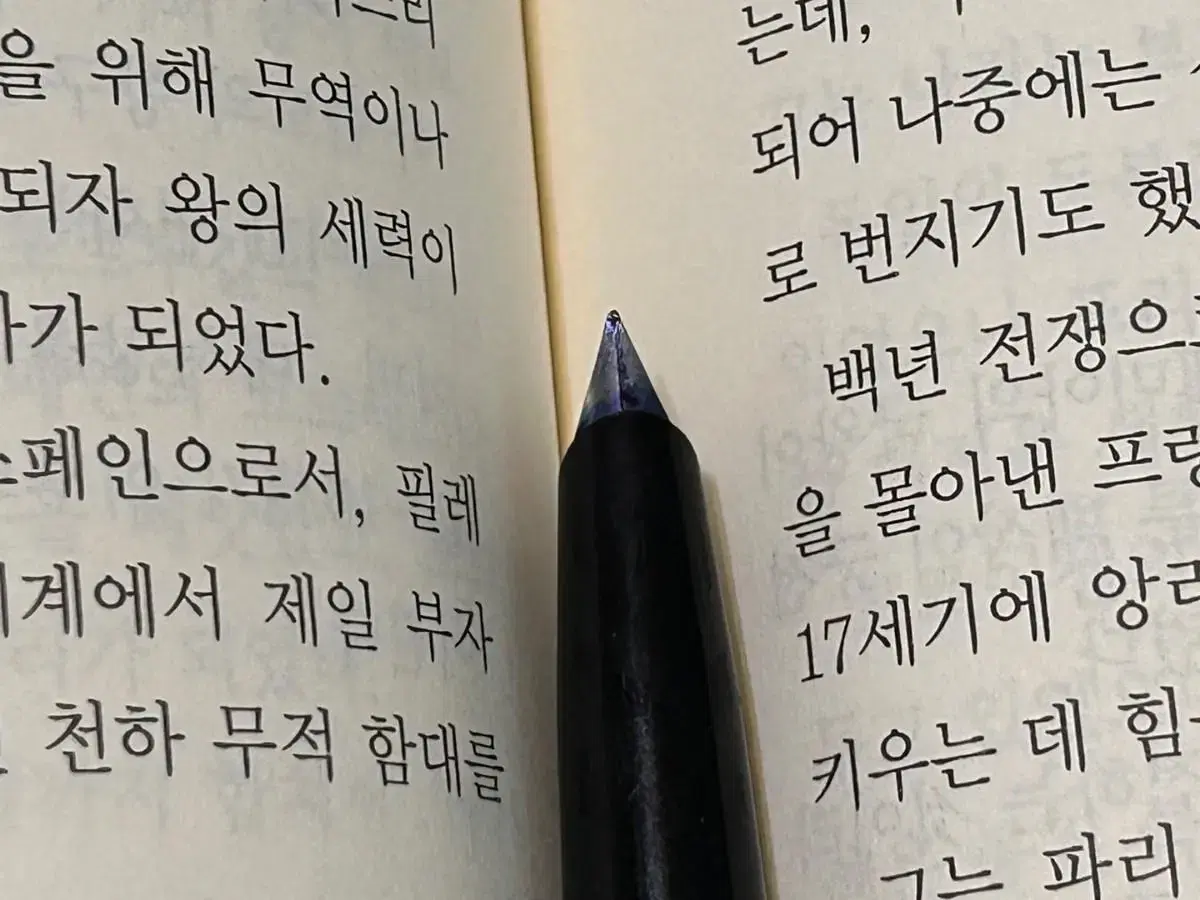 을 위해 무역이나
되자 왕의 세력이
가 되었다.
스페인으로서, 필레
계에서 제일 부자
천하 무적 함대를
는데,
되어 나중에는
로 번지기도 했
백년 전쟁으로
을 몰아낸 프랑
17세기에 앙리
키우는 데 힘
그는 파리